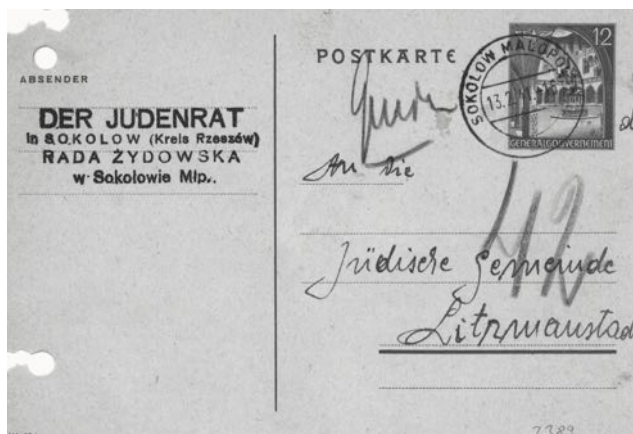 ABSENDER
DER JUDENRAT
in SOKOLOW (Kreis Rzeszów)
RADA ŻYDOWSKA
w Sokołowie Młp..
POSTKARTE
SOKOLOW MALOPOLSKI
13.2.41
12
GENERALGOUVERNEMENT
An die
42
Jüdische Gemeinde
Litzmannstad
7389